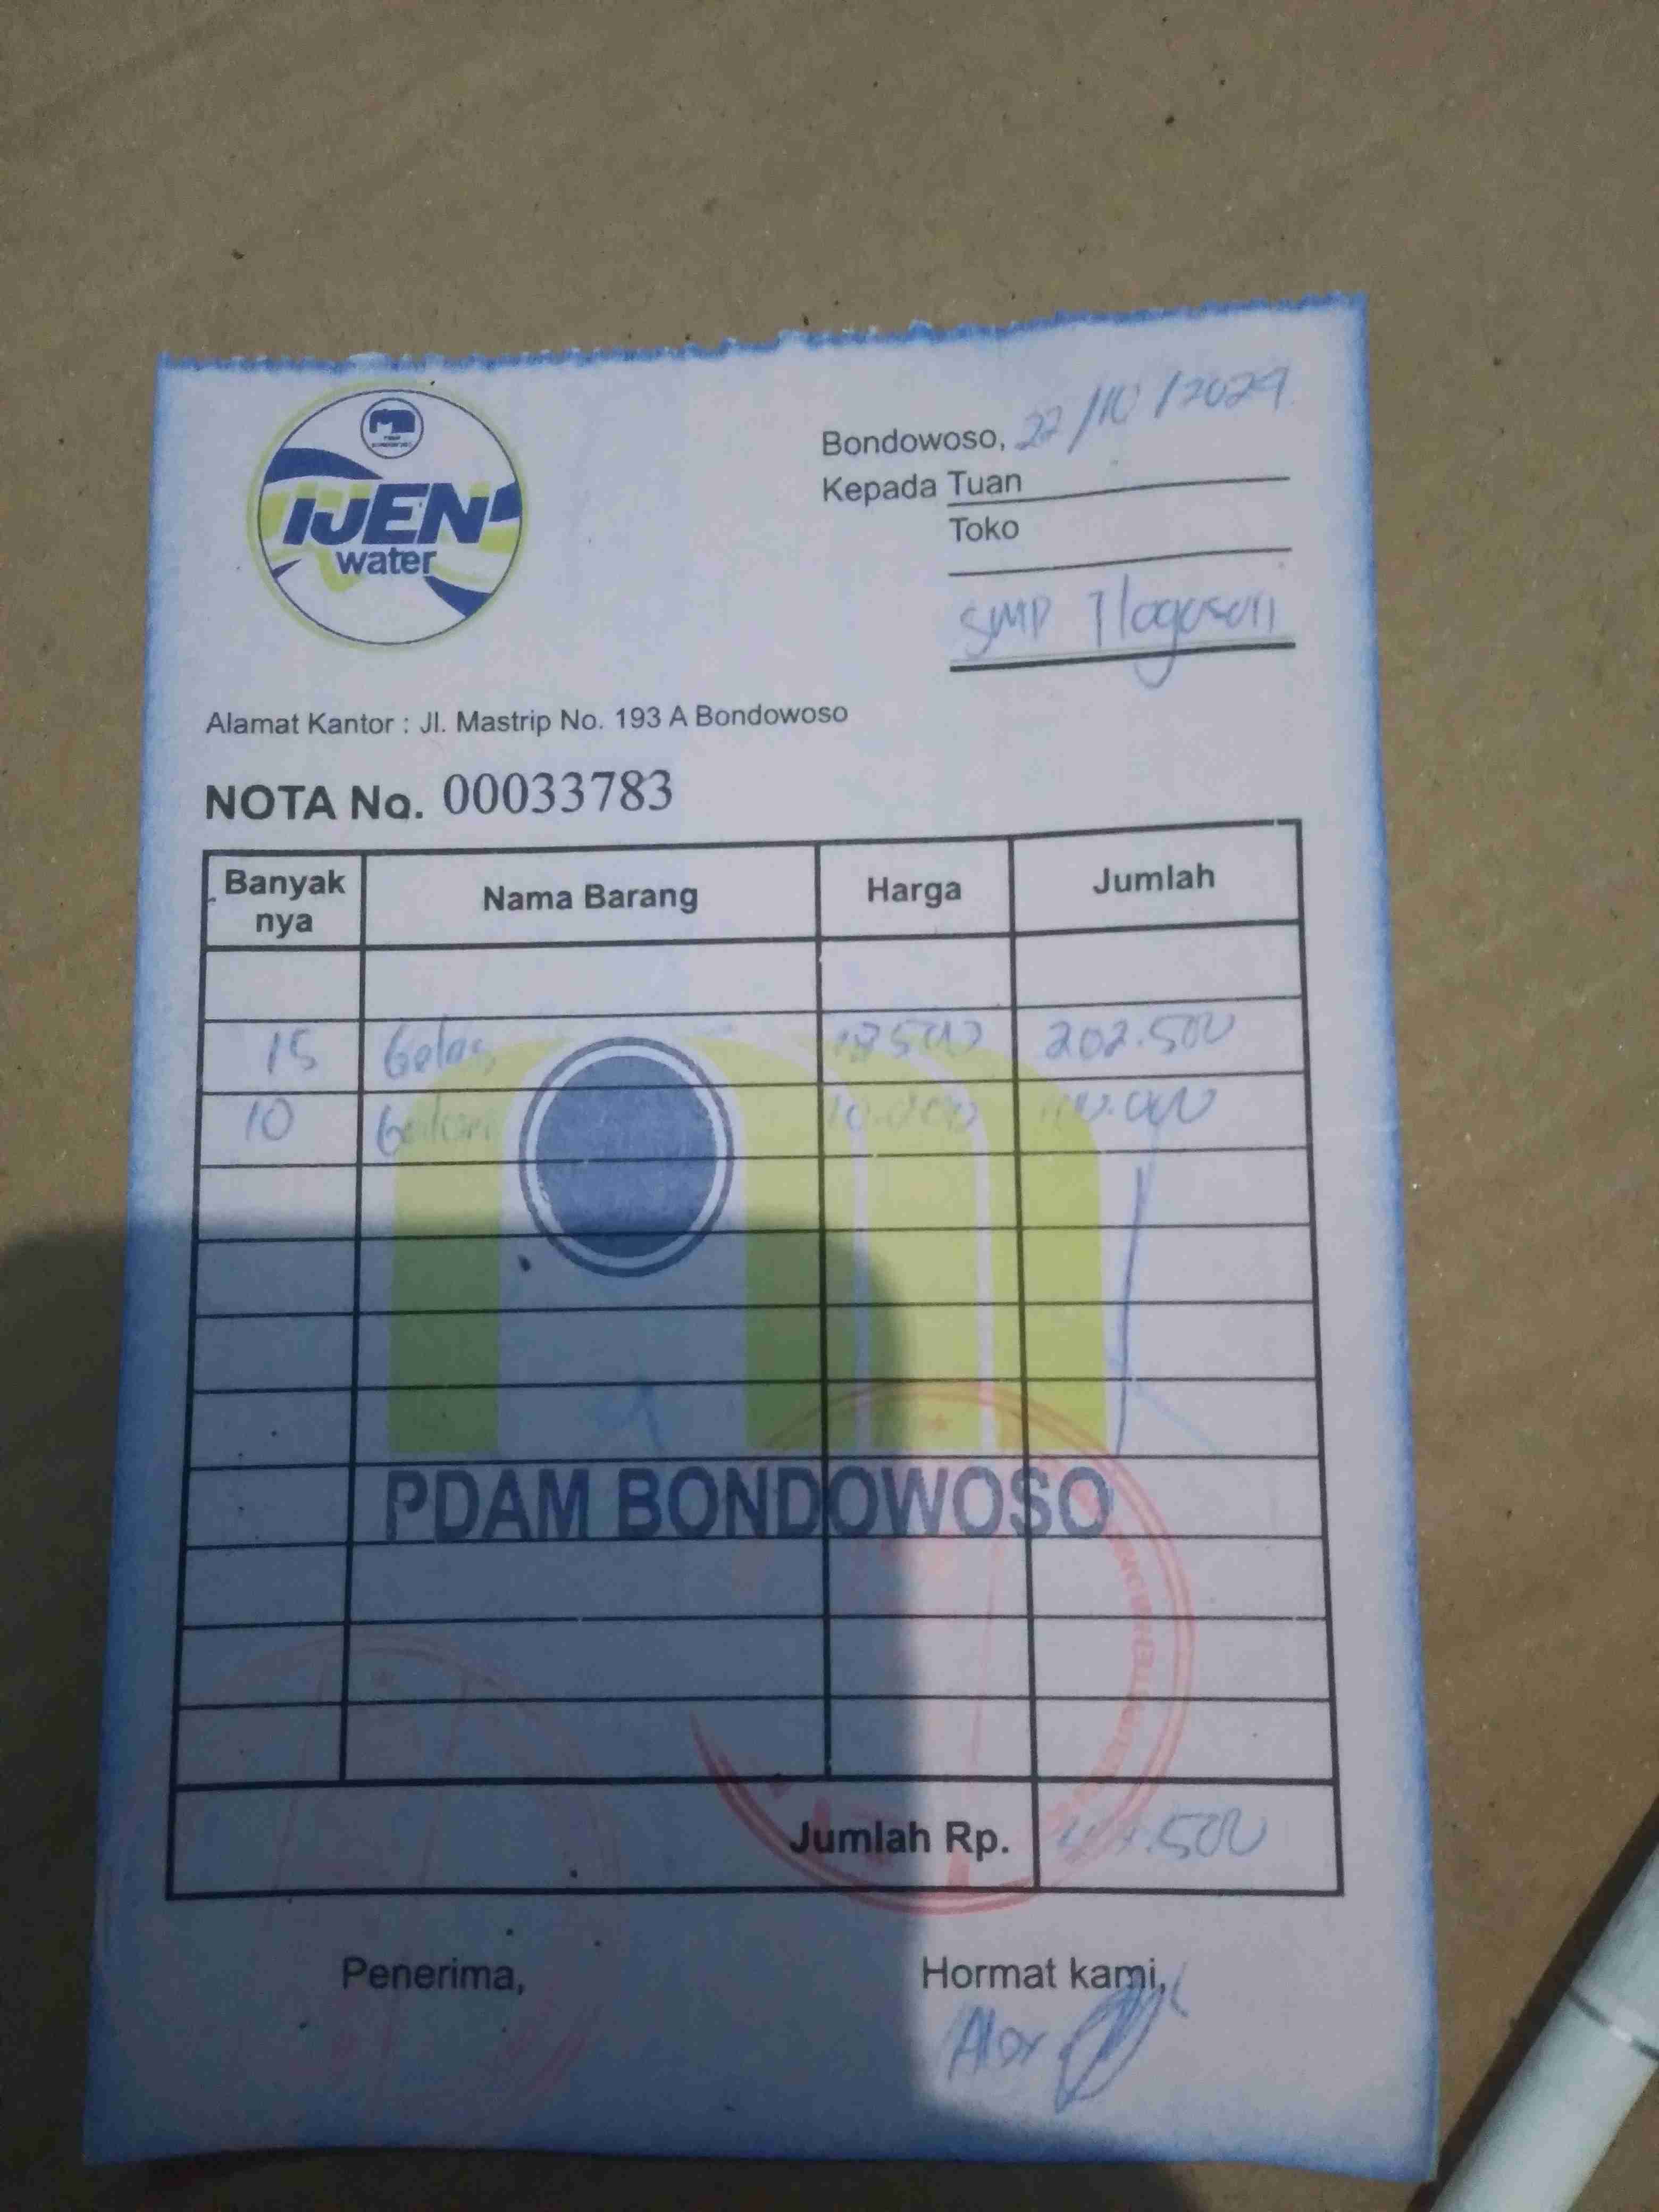 IJEN
water
Bondowoso, 22/10/2024
Kepada Tuan
Toko
SMP Tlogosari
Alamat Kantor : Jl. Mastrip No. 193 A Bondowoso
NOTA No. 00033783
Banyak nya Nama Barang Harga Jumlah
15 Gelas 13500 202.500
10 10.000 100.000
PDAM BONDOWOSO
Jumlah Rp.
Penerima, Hormat kami,